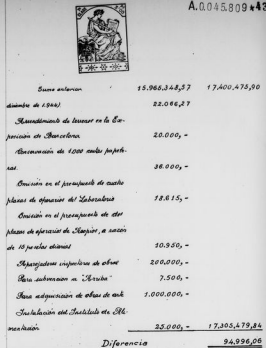 A.0.045.809 *43
Suma anterior 15.965.348,57 17.400.475,90
diciembre de 1.944) 22.066,27
Arrendamiento de terrenos en la Ex-
posición de Barcelona 20.000,-
Conservación de 1.000 metas papele-
ras 36.000,-
Omisión en el presupuesto de cuatro
plazas de operarios del Laboratorio 18.615,-
Omisión en el presupuesto de dos
plazas de operarios de Acopios, a razón
de 15 pesetas diarias 10.950,-
Aparejadores inspectores de obras 200,000,-
Para subvención a "Arriba" 7.500,-
Para adquisición de obras de arte 1.000,000,-
Instalación del Instituto de Ali-
mentación 25.000,- 17,305,479,84
Diferencia 94,996,06